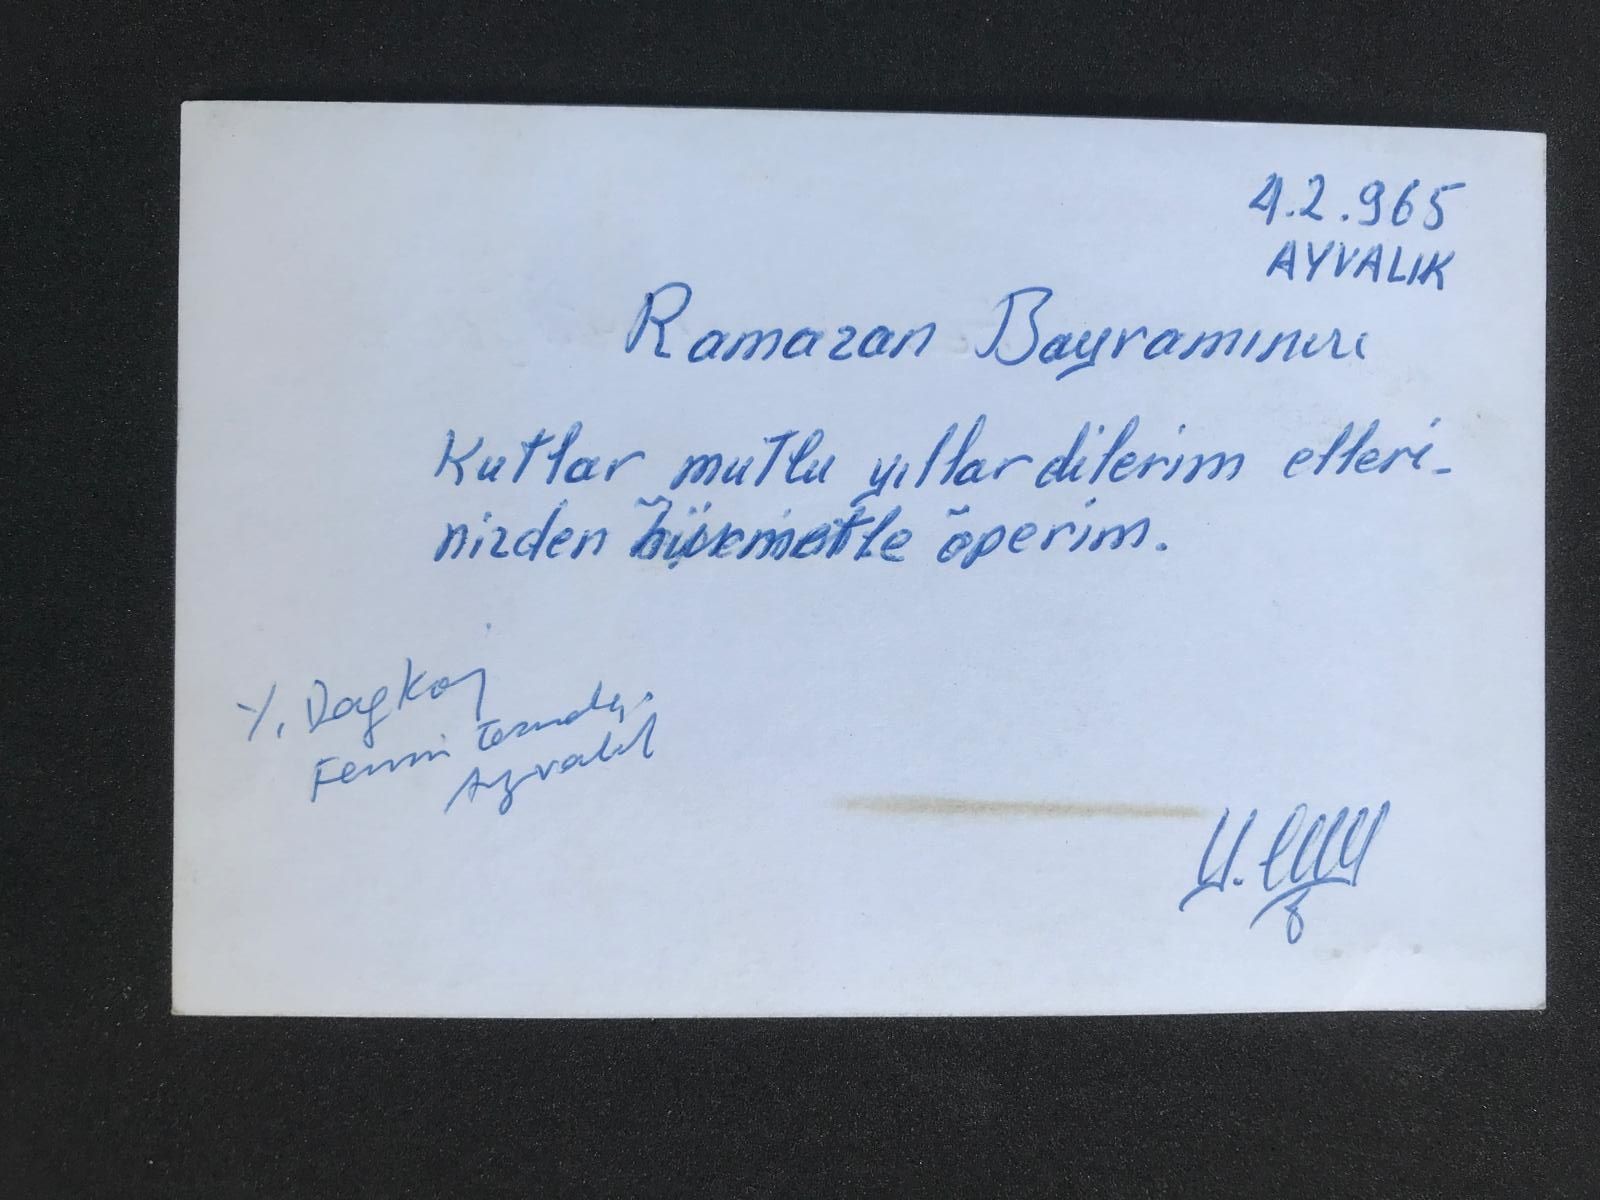 4.2.965
AYVALIK
Ramazan Bayramınızı
Kutlar mutlu yıllar dilerim elleri-
nizden hürmetle öperim.
Y. Dagköy
Ayvalık